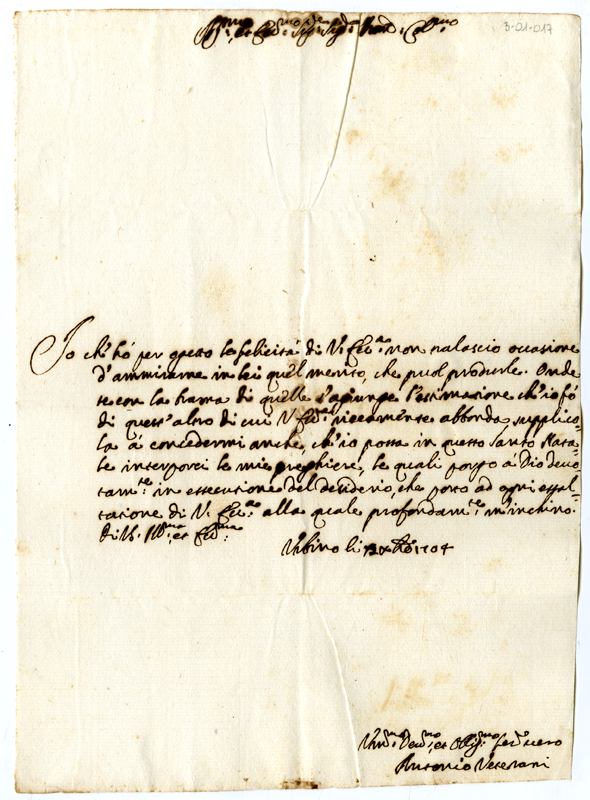 3-01-017
Ill.mo et Ecc.mo Sig.re Sig.re Pron. Col.mo
Io ch'hò per ogetto la felicità di V. Ecc.a non tralascio occasione
d'ammirarne in lei quel merito, che può produrle. Onde
se con la brama di quelle s'agiunge l'estimazione ch'io fò
di quest'altro di cui V. Ecc.a riccamente abbonda, supplico=
la à concedermi anche, ch'io possa in questo Santo Nata=
le interporci le mie preghiere, le quali porgo à Dio devo=
tam.te in essecutione del desiderio, che porto ad ogni essal=
tatione di V. Ecc.a alla quale profondam.te m'inchino.
Di V. Ill.ma, et Ecc.ma
Urbino li Xbre 1704
Um.mo Dev.mo, et Oblig.mo Ser.re vero
Antonio Veterani